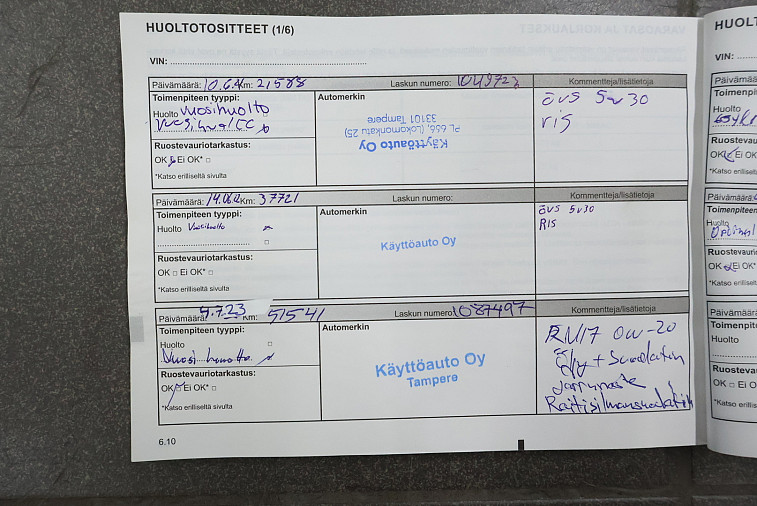 HUOLTOTOSITTEET (1/6)
VIN:
Päivämäärä: 10.6. Km: 21588 Laskun numero: 1049723 Kommentteja/lisätietoja
Toimenpiteen tyyppi:
Huolto Vuosihuolto
Automerkin
Käyttöauto Oy
PL 656, (Lokomonkatu 25)
33101 Tampere
öVS 5w30
ris
Ruostevauriotarkastus:
OK Ei OK*
*Katso erilliseltä sivulta
Päivämäärä: 14.06. Km: 37721 Laskun numero: Kommentteja/lisätietoja
Toimenpiteen tyyppi:
Huolto Vuosihuolto
Automerkin
Käyttöauto Oy
öVS 5w30
RIS
Ruostevauriotarkastus:
OK Ei OK*
*Katso erilliseltä sivulta
Päivämäärä: 5.7.23 Km: 51541 Laskun numero: 1087497 Kommentteja/lisätietoja
Toimenpiteen tyyppi:
Huolto
Vuosihuolto
Automerkin
Käyttöauto Oy
Tampere
RN17 0w-20
Öljy + Suodatin
Jarruneste
Raitisilmansuodatin
Ruostevauriotarkastus:
OK Ei OK*
*Katso erilliseltä sivulta
6.10
HUOLT
VIN:
Päivämää
Toimenpi
Huolto
Ruosteva
OK Ei OK
*Katso erillis
Päivämäärä:
Toimenpiteen
Huolto
Ruostevaurio
OK Ei OK*
*Katso erillise
Päivämäärä
Toimenpit
Huolto
Ruostevau
OK Ei O
*Katso erillis